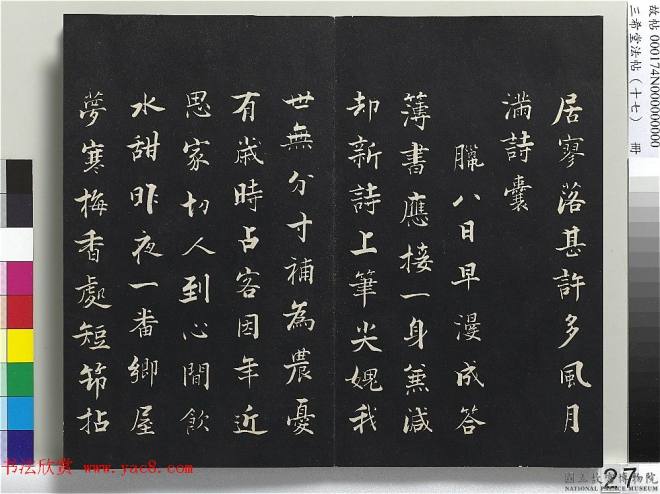 居寥落甚許多風月
滿詩囊
臘八日早漫成答
簿書應接一身兼減
却新詩上筆尖媿我
世無分寸補為農憂
有歲時占客因年近
思家切人到心閒飲
水甜昨夜一番鄉屋
夢寒梅香處短節拈
故帖 000174N000000000
三希堂法帖(十七) 冊
书法欣赏 www.yac8.com
27
國立故宮博物院
NATIONAL PALACE MUSEUM